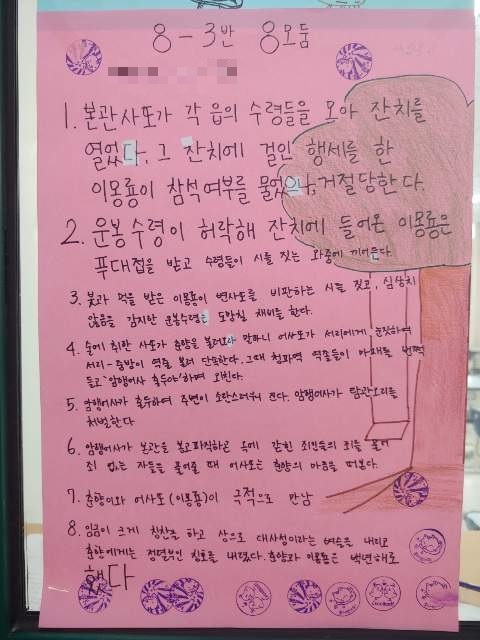 8-3반 8모둠
1. 본관사또가 각 읍의 수령들을 모아 잔치를
열었다. 그 잔치에 걸인 행세를 한
이몽룡이 참석여부를 물었으나, 거절당한다.
2. 운봉수령이 허락해 잔치에 들어온 이몽룡은
푸대접을 받고 수령들이 시를 짓는 와중에 끼어든다.
3. 붓과 먹을 받은 이몽룡이 변사또를 비판하는 시를 짓고, 심상치
않음을 감지한 운봉수령은 도망칠 채비를 한다.
4. 술에 취한 사또가 춘향을 불러오라 말하니 어사또가 서리에게 눈짓하여
서리-중방이 역졸 불러 단속한다. 그때 청파역 역졸들이 마패를 번쩍
들고 "암행어사 출두야!" 하며 외친다.
5. 암행어사가 출두하여 주변이 소란스러워 진다. 암행어사가 탐관오리를
처벌한다
6. 암행어사가 본관을 봉고파직하곤 옥에 갇힌 죄인들의 죄를 물어
죄 없는 자들을 풀어줄 때 어사또는 춘향의 마음을 떠본다.
7. 춘향이와 어사또(이몽룡)이 극적으로 만남
8. 임금이 크게 칭찬을 하고 상으로 대사성이라는 벼슬을 내리고
춘향에게는 정렬부인 칭호를 내렸다. 춘향과 이몽룡은 백년해로
했다